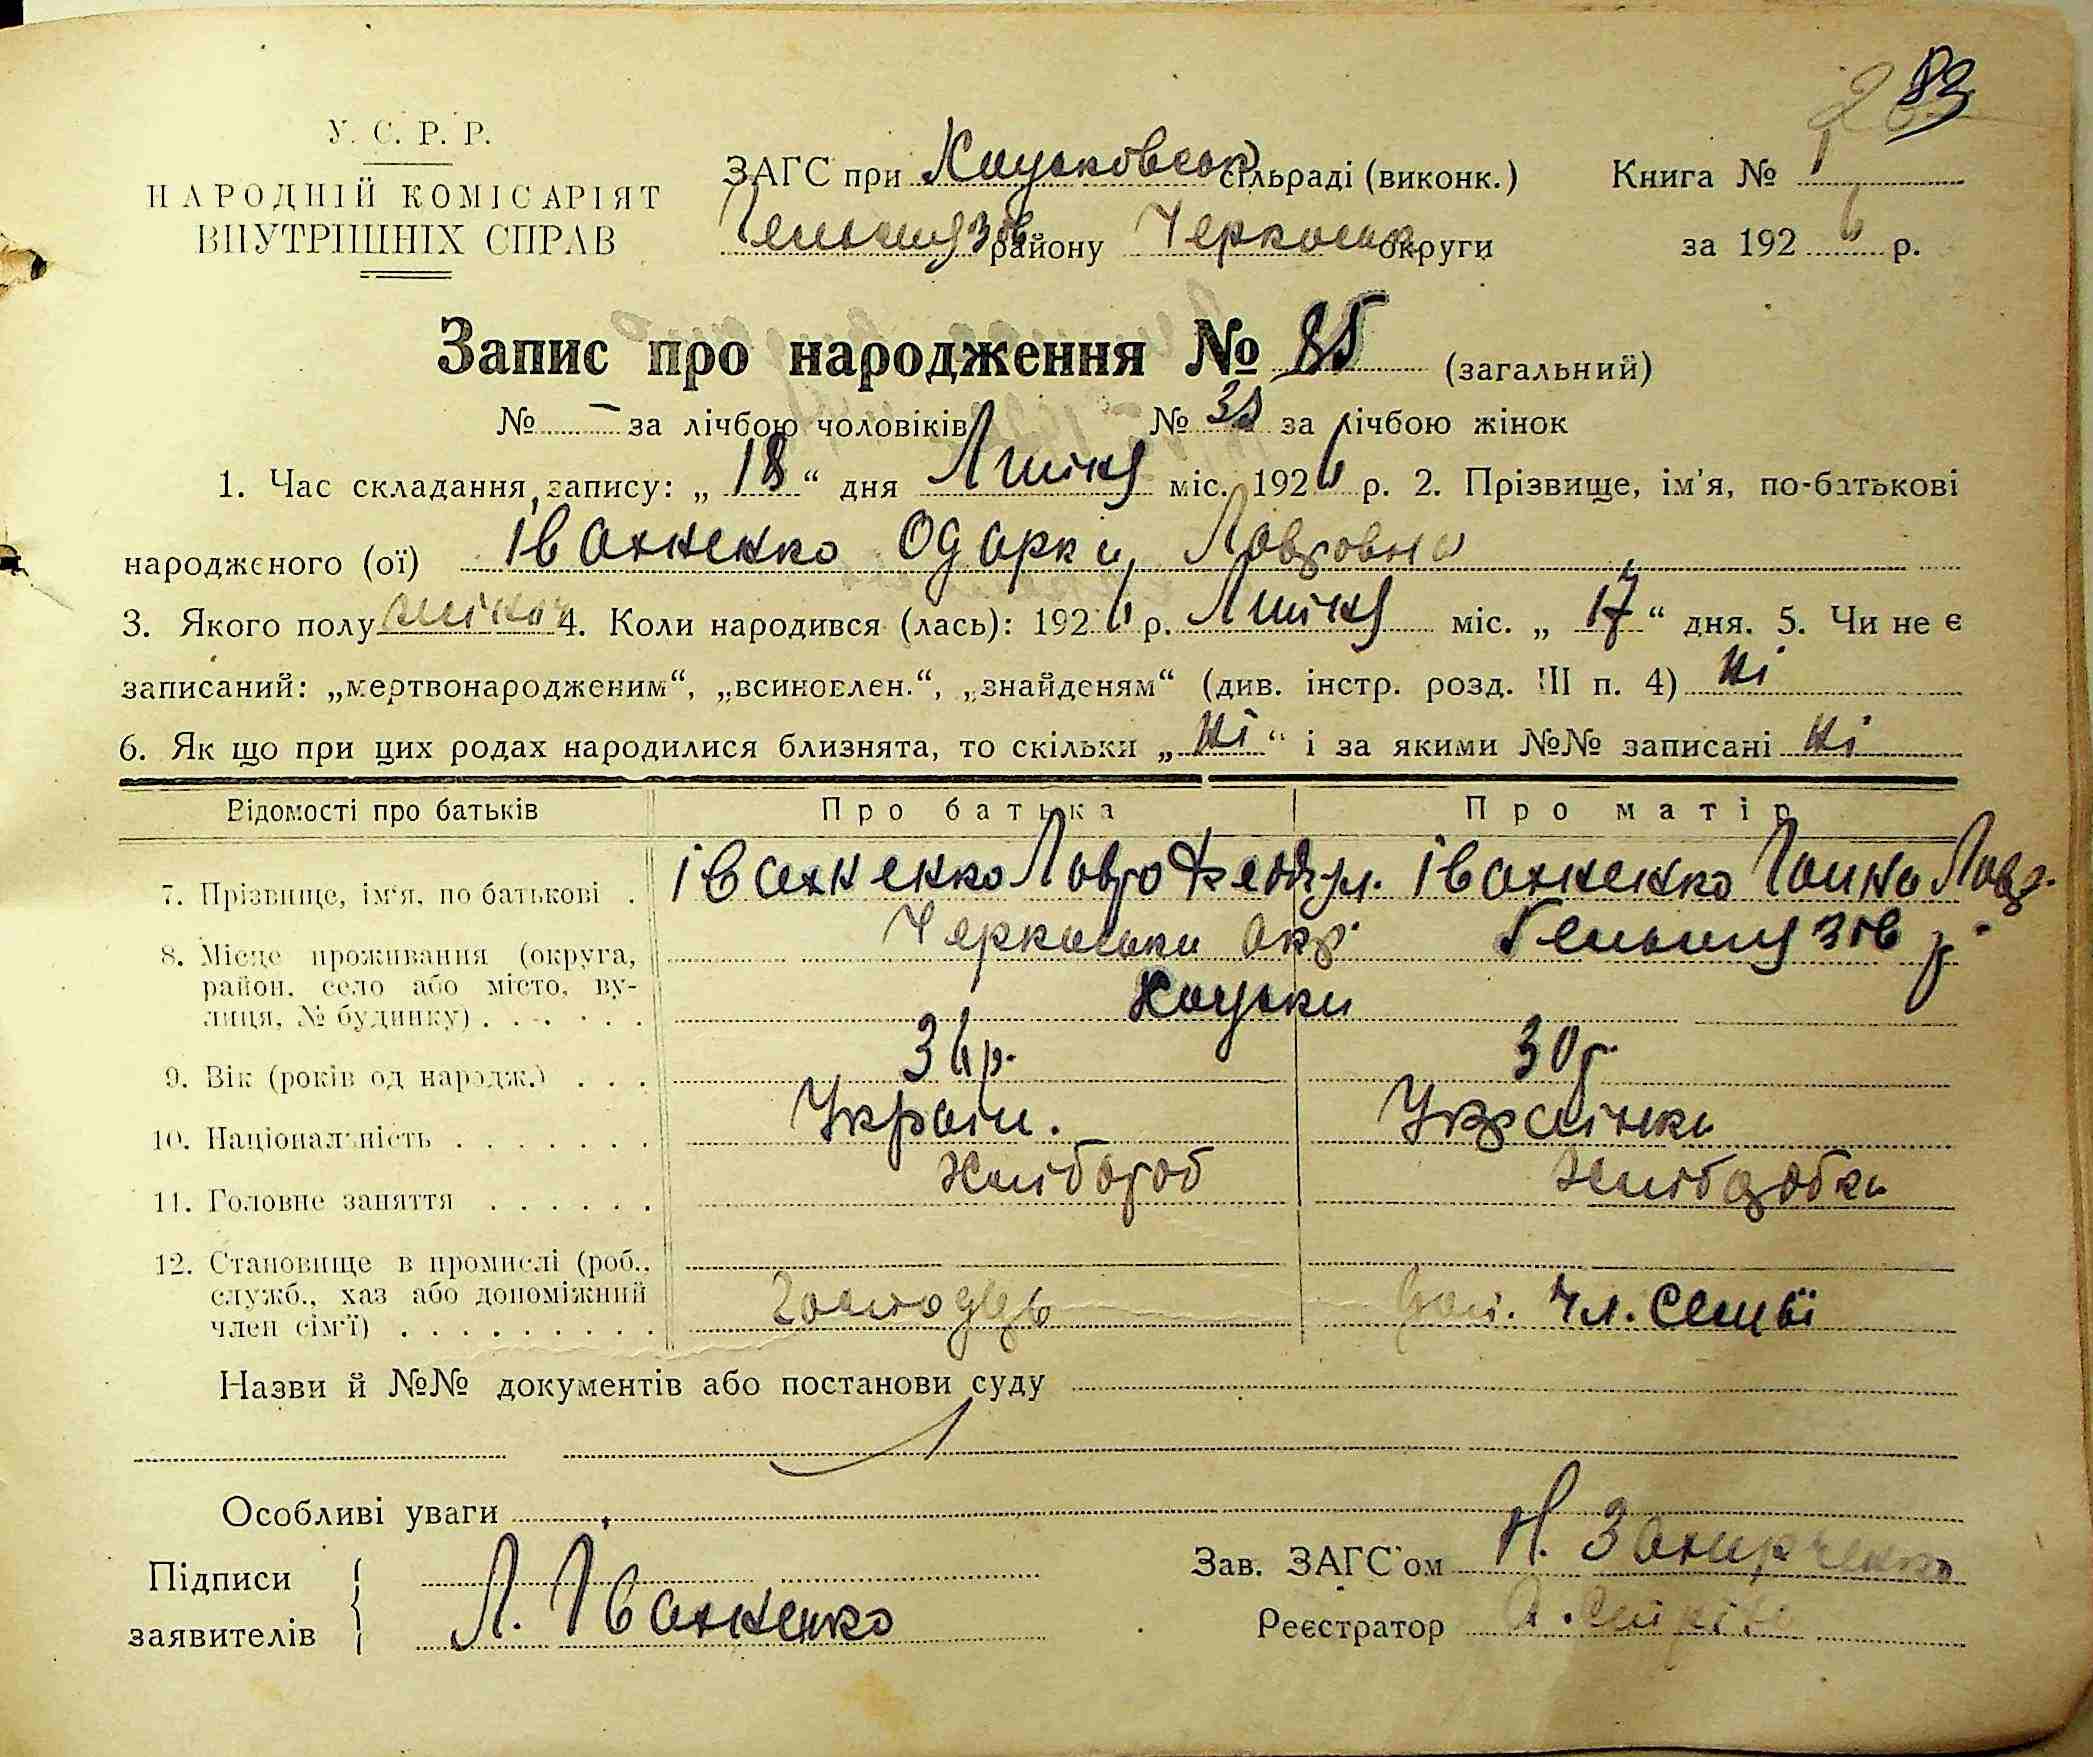 83
У. С. Р. Р.
НАРОДНІЙ КОМІСАРІЯТ
ВНУТРІШНІХ СПРАВ
ЗАГС при Хацьковськ сільраді (виконк.) Книга № 1
Гельмязів району Черкаськ округи за 1926 р.
Запис про народження № 85 (загальний)
№ – за лічбою чоловіків № 38 за лічбою жінок
1. Час складання запису: „18“ дня Липня міс. 1926 р. 2. Прізвище, ім'я, по-батькові
народженого (ої) Іваненко Одарки Лавровна
3. Якого полу жіноч 4. Коли народився (лась): 1926 р. Липня міс. „17“ дня. 5. Чи не є
записаний: „мертвонародженим“, „всиновлен.“, „знайденям“ (див. інстр. розд. III п. 4) Ні
6. Як що при цих родах народилися близнята, то скільки „Ні“ і за якими №№ записані Ні
Відомості про батьків Про батька Про матір
7. Прізвище, ім'я, по батькові . Іваненко Лавро Іваненко Ганна Лавр.
8. Місце проживання (округа, Черкаськи окр. Гельмязів р.
район, село або місто, ву-
лиця, № будинку) . . . . . . Хацьки
9. Вік (років од народж.) . . . 36 р. 30 р.
10. Національність . . . . . . . Україн. Українка
11. Головне заняття . . . . . . Хлібороб Хліборобка
12. Становище в промислі (роб.,
служб., хаз або допоміжний
член сім'ї) . . . . . . . . . . Господарь Доп. чл. семьї
Назви й №№ документів або постанови суду
Особливі уваги
Підписи
заявителів Л. Іваненко
Зав. ЗАГС'ом Н.
Реєстратор